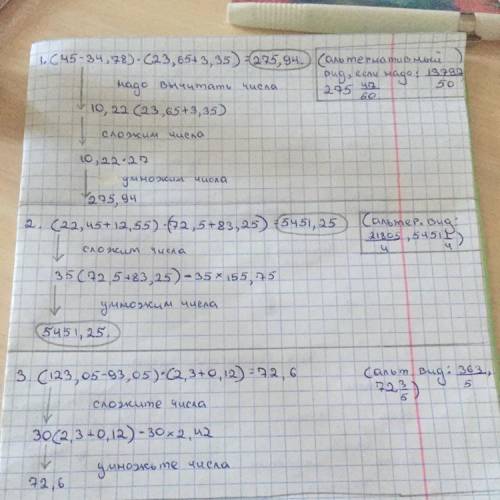 1. (45-34,78)·(23,65+3,35)=275,94.
(альтернативный
вид, если надо: 13797/50
275 47/50
надо вычитать числа
10,22(23,65+3,35)
сложим числа
10,22·27
умножим числа
275,94
2. (22,45+12,55)·(72,5+83,25)=5451,25
(альтер. вид:
21805/4, 5451 1/4)
сложим числа
35(72,5+83,25)=35×155,75
умножим числа
5451,25.
3. (123,05-93,05)·(2,3+0,12)=72,6
(альт. вид: 363/5,
72 3/5)
сложите числа
30(2,3+0,12)=30×2,42
умножьте числа
72,6